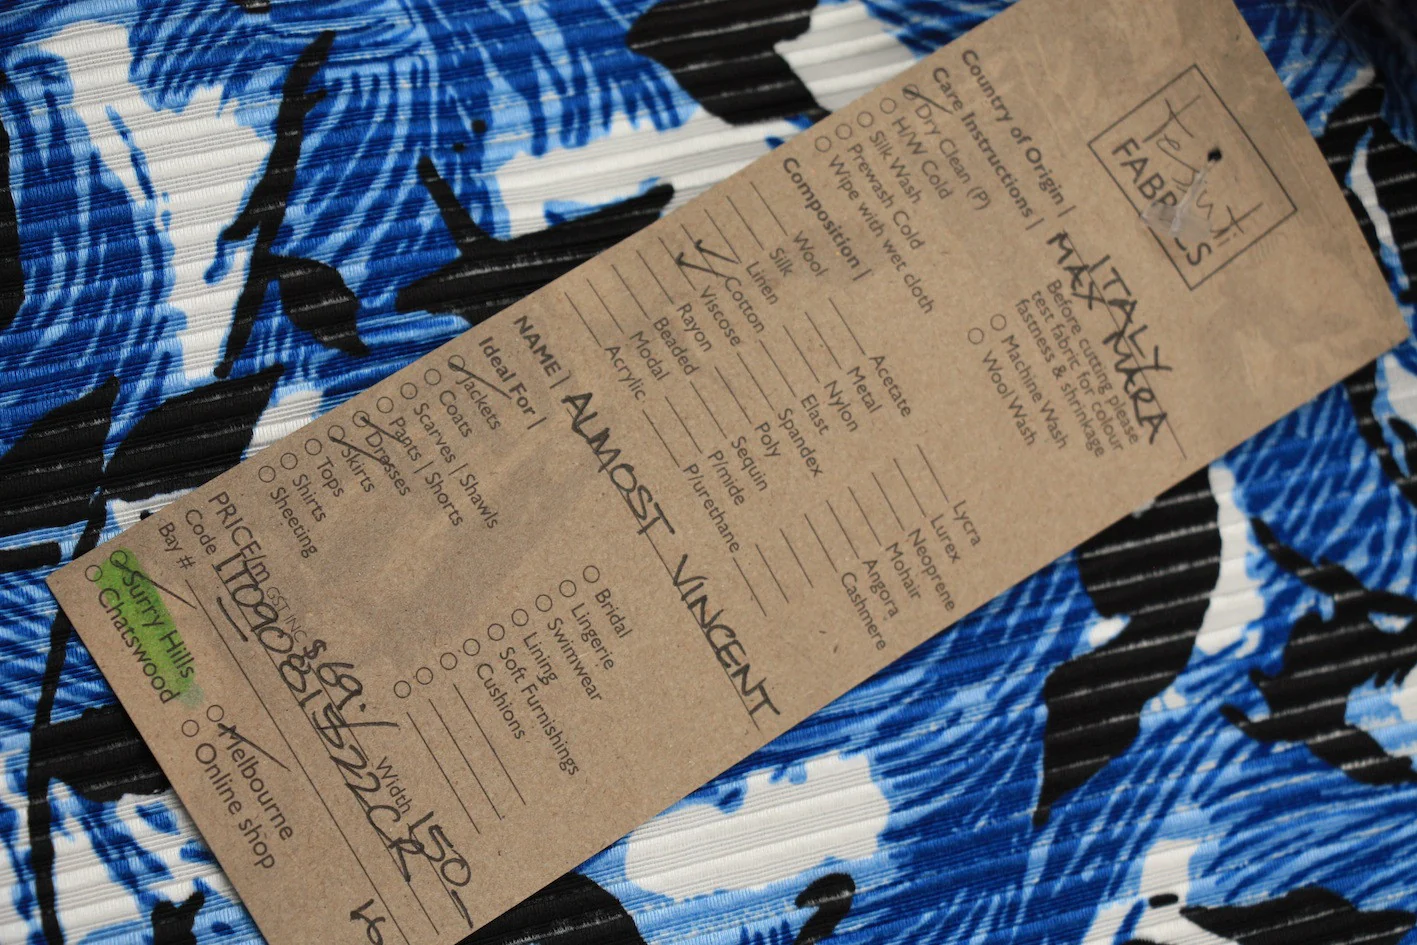 tessuti
FABRICS
Country of Origin | ITALY
MAX MARA
Care Instructions | Before cutting please
test fabric for colour
fastness & shrinkage
Dry Clean (P) Machine Wash
H/W Cold Wool Wash
Silk Wash
Prewash Cold
Wipe with wet cloth
Composition |
Wool Acetate Lycra
Silk Metal Lurex
Linen Nylon Neoprene
Cotton Elast Mohair
Viscose Spandex Angora
Rayon Poly Cashmere
Beaded Sequin
Modal P/mide
Acrylic P/urethane
NAME | ALMOST VINCENT
Ideal For |
Jackets Bridal
Coats Lingerie
Scarves | Shawls Swimwear
Pants | Shorts Lining
Dresses Soft Furnishings
Skirts Cushions
Tops
Shirts
Sheeting
PRICE/m GST INC $69./ Width 150
Code IT090815522CR
Bay #
Surry Hills Melbourne
Chatswood Online shop